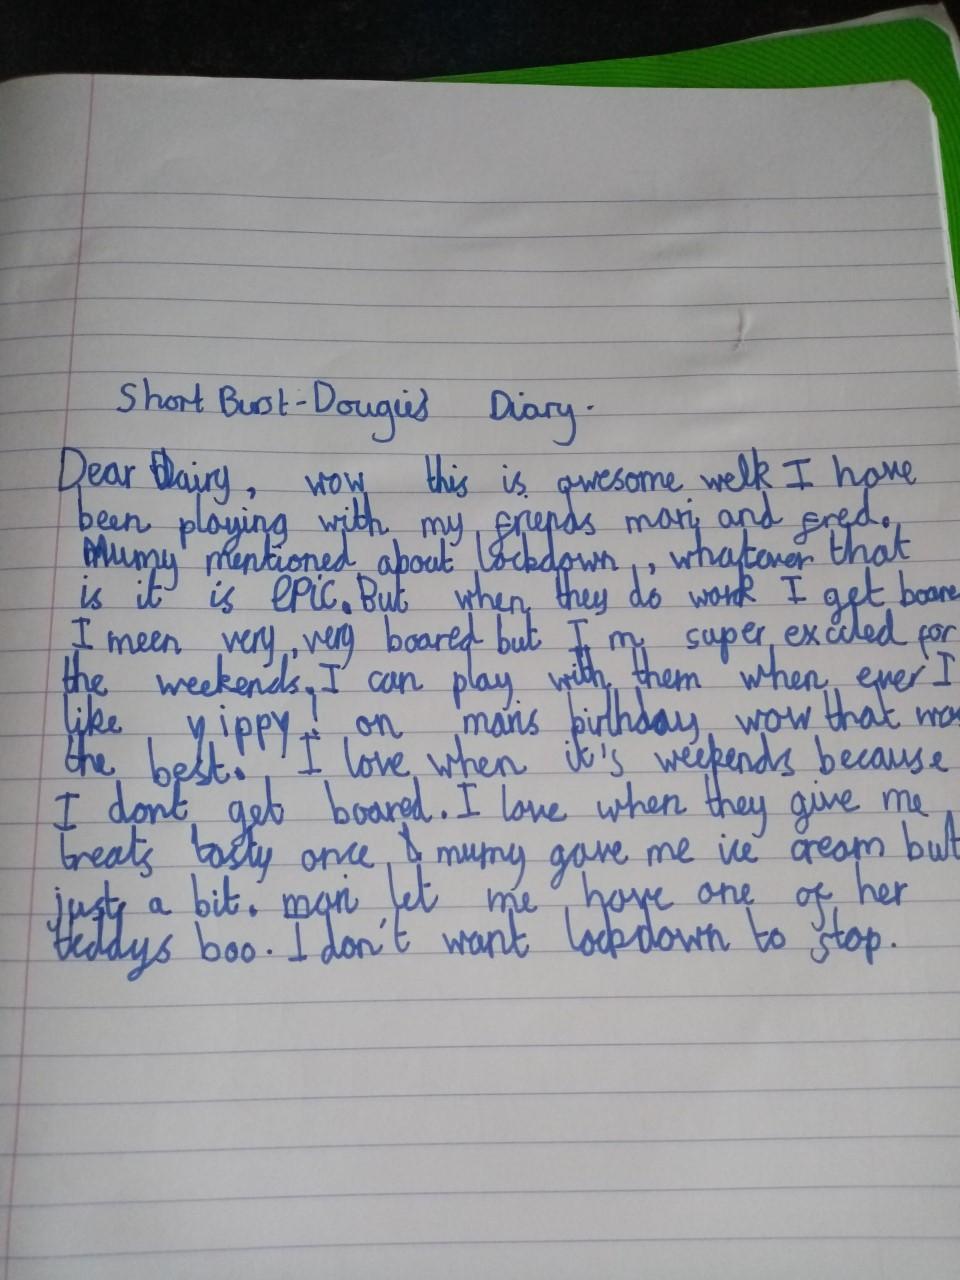 Short Bust - Dougie's Diary.
Dear Dairy, wow this is awesome welk I have
been playing with my friends mari and fred.
Mumy mentioned about lockdown, whatever that
is it is epic. But when they do work I get boare
I meen very, very boared but I'm super excited for
the weekends. I can play with them when ever I
like yippy! on maris birthday wow that was
the best. I love when it's weekends because
I dont get boared. I love when they give me
treats tasty once mumy gave me ice cream but
just a bit. mari let me have one of her
teddys boo. I don't want lockdown to stop.